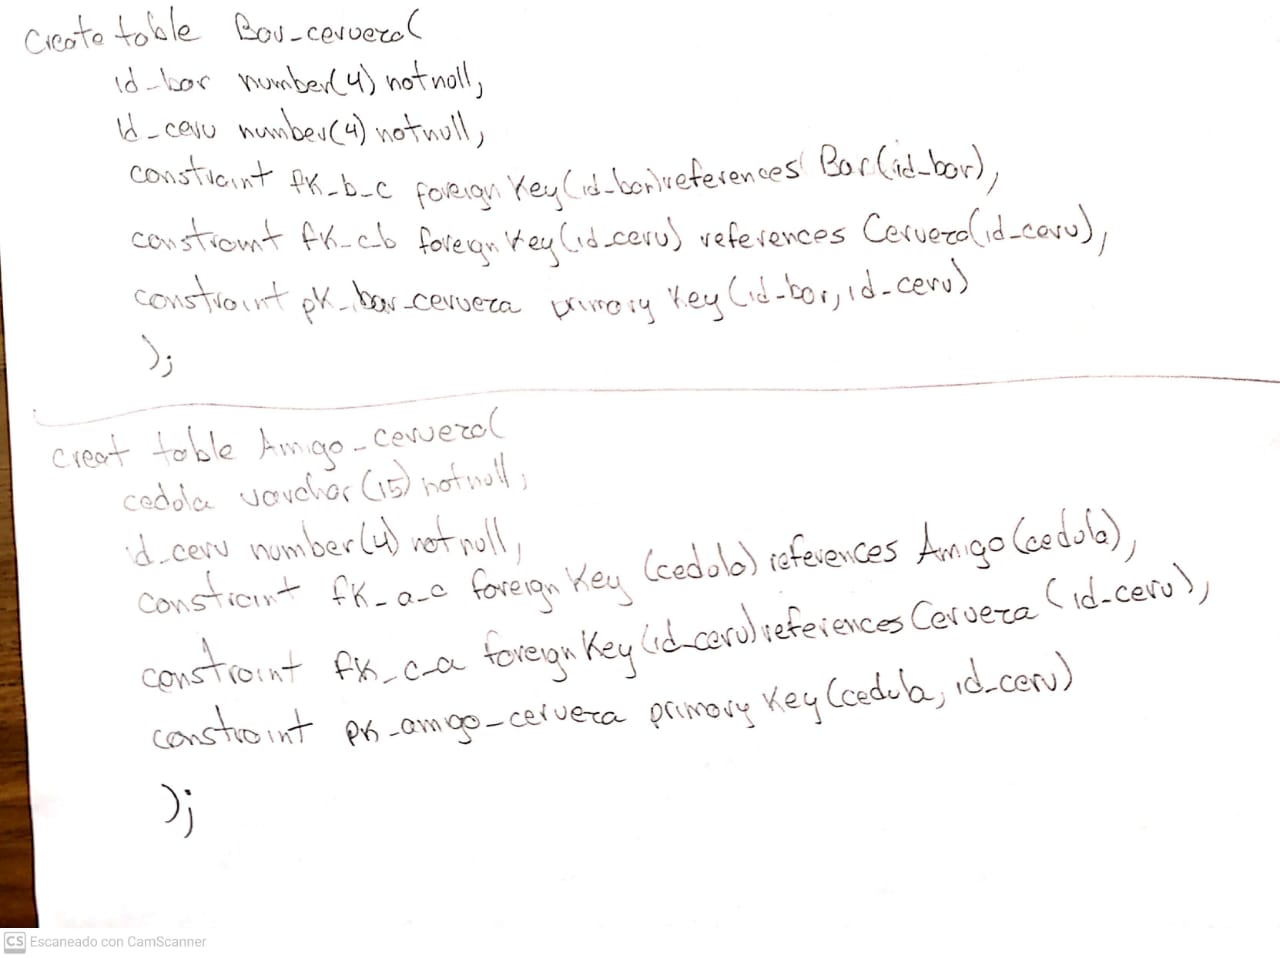 Create table Bar_cerveza(
id_bar number(4) not null,
id_cerv number(4) not null,
constraint fk_b_c foreign key(id_bar) references Bar(id_bar),
constraint fk_c_b foreign key(id_cerv) references Cerveza(id_cerv),
constraint pk_bar_cerveza primary key(id_bar, id_cerv)
);
creat table Amigo_cerveza(
cedula varchar(15) not null,
id_cerv number(4) not null,
constraint fk_a_c foreign key (cedula) references Amigo(cedula),
constraint fk_c_a foreign key(id_cerv) references Cerveza(id_cerv),
constraint pk_amigo_cerveza primary key(cedula, id_cerv)
);
CS Escaneado con CamScanner